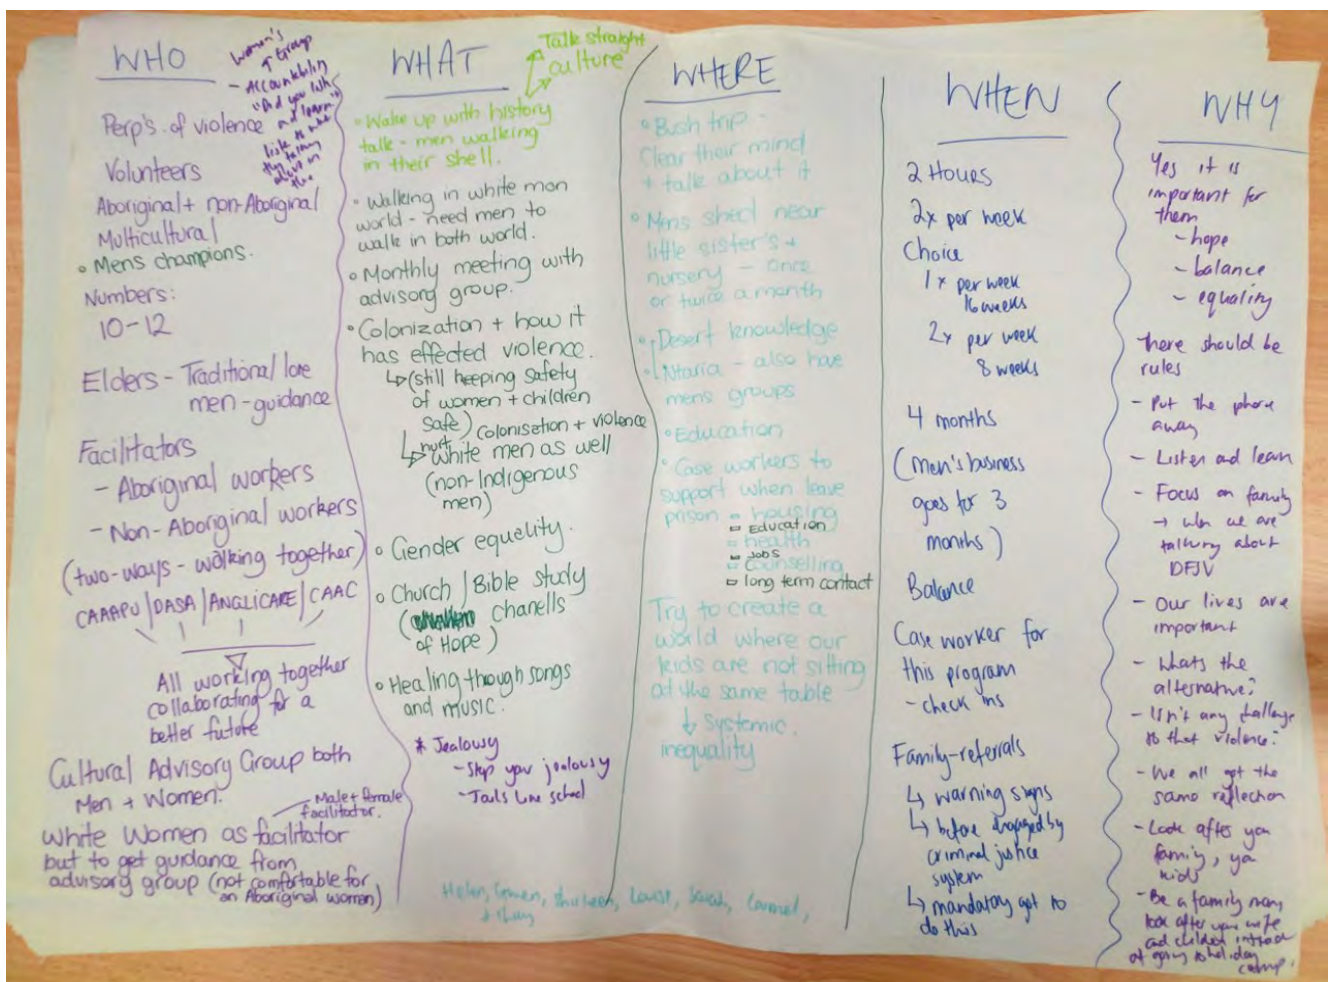 WHO
Women's
Group
- Accountability
"Did you listen
and learn"
Perp's. of violence
Volunteers
Aboriginal + non-Aboriginal
Multicultural
• Mens champions.
Numbers:
10-12
Elders - Traditional lore
men - guidance
Facilitators
- Aboriginal workers
- Non-Aboriginal workers
(two-ways - walking together)
CAAAPU / DASA / ANGLICARE / CAAC
All working together
collaborating for a
better future
Cultural Advisory Group both
Men + Women.
- Male + female
facilitator.
White Women as facilitator
but to get guidance from
advisorg group (not comfortable for
an Aboriginal woman)
WHAT
Talk straight
culture
• Wake up with history
talk - men walking
in their shell.
• Walking in white man
world - need men to
walk in both world.
• Monthly meeting with
advisorg group.
• Colonization + how it
has effected violence.
↳ (still keeping safety
of women + children
safe)
↳ hurt Colonisation + violence
white men as well
(non-Indigenous
men)
• Gender equality.
• Church / Bible study
( chanells
of Hope)
• Healing through songs
and music.
* Jealousy
- Stop your jealousy
- Jails like school
WHERE
• Bush trip -
Clear their mind
+ talk about it
• Mens shed near
little sister's +
nursery - once
or twice a month
• Desert knowledge
• Ntaria - also have
mens groups
• Education
• Case workers to
support when leave
prison - housing
- Education
- health
- Jobs
- counselling
- long term contact
Try to create a
world where our
kids are not sitting
at the same table
↓ systemic.
inequality
Helen, Louise, Sarah, Carmel,
WHEN
2 Hours
2x per week
Choice
1x per week
16 weeks
2x per week
8 weeks
4 months
(men's business
goes for 3
months)
Balance
Case worker for
this program
- check ins
Family-referrals
↳ warning signs
↳ before engaged by
criminal justice
system
↳ mandatory got to
do this
WHY
Yes it is
important for
them
- hope
- balance
- equality
there should be
rules
- Put the phone
away
- Listen and learn
- Focus on family
→ when we are
talking about
DFSV
- Our lives are
important
- Whats the
alternative?
- Isn't any challenge
to that violence?
- We all got the
same reflection
- Look after you
family, ya
kids
- Be a family man,
look after your wife
and children instead
of going to holiday
camp.